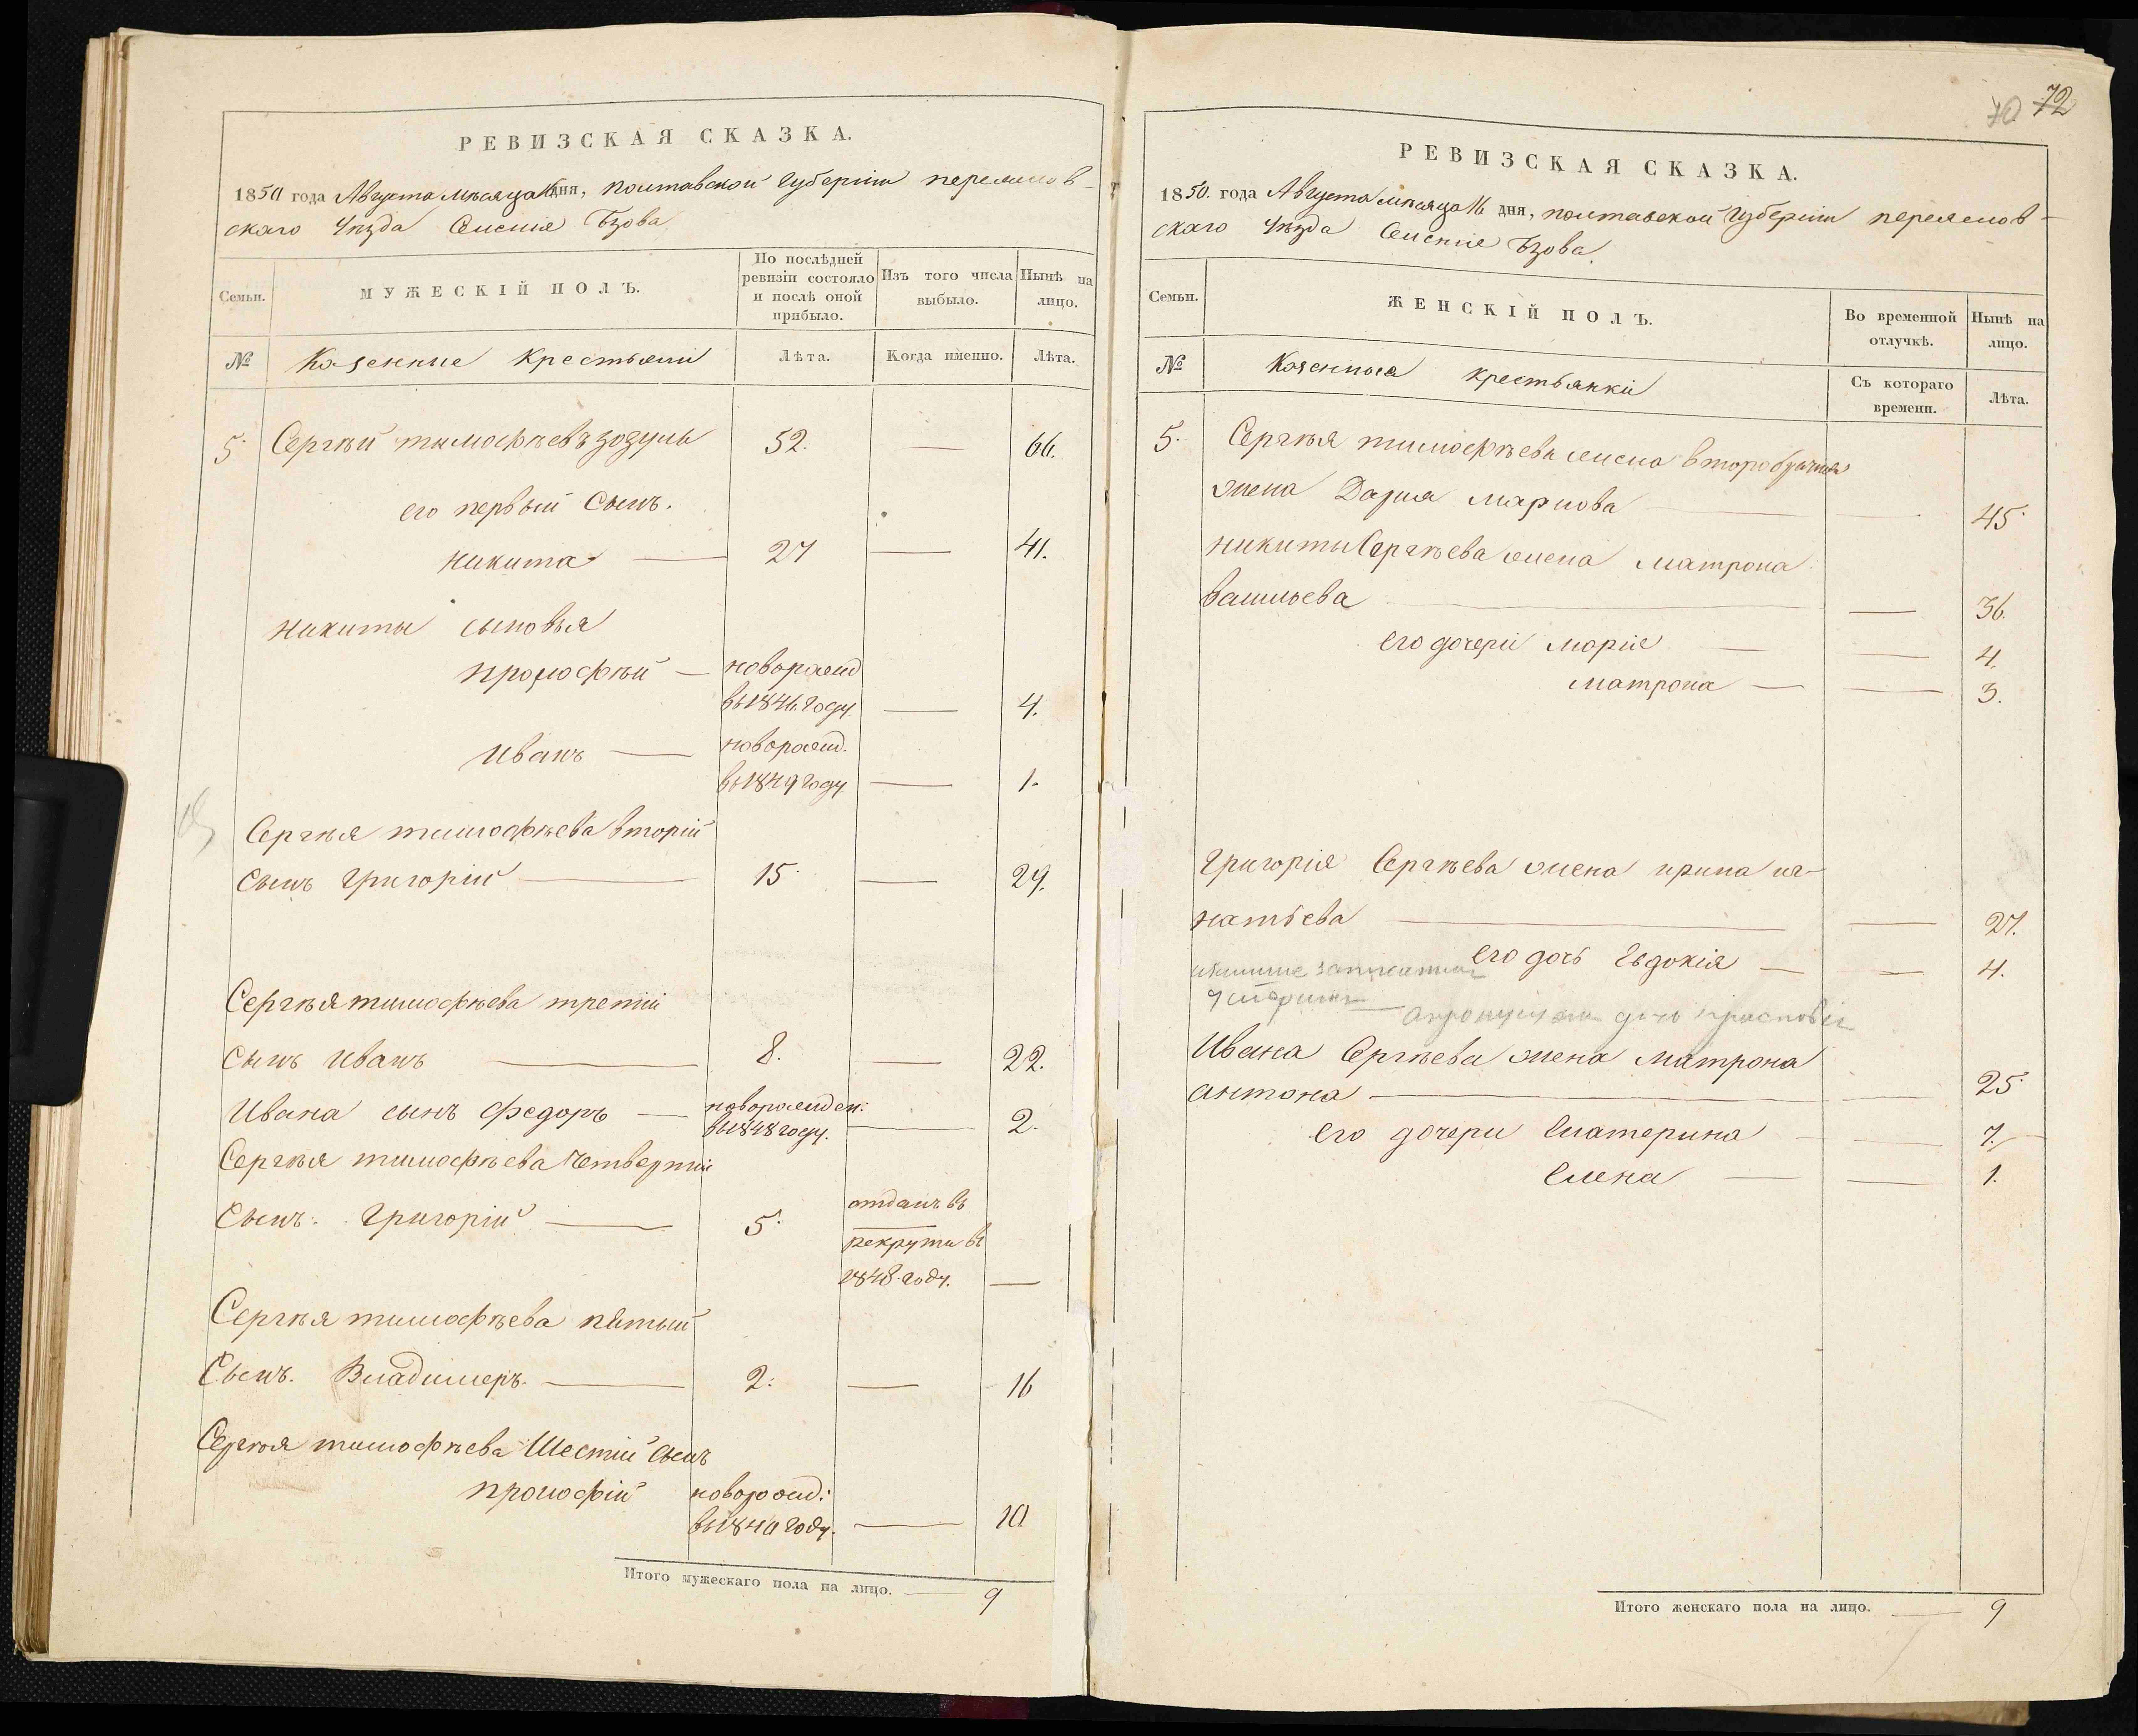 РЕВИЗСКАЯ СКАЗКА.
1850 года Августа мѣсяца 16 дня, полтавской Губерніи переяслов-
скаго Уѣзда Селенія Ъзова
Семьи.
МУЖЕСКІЙ ПОЛЪ.
По послѣдней ревизіи состояло и послѣ оной прибыло.
Изъ того числа выбыло.
Нынѣ на лицо.
№
Козенние Крестьяни
Лѣта.
Когда именно.
Лѣта.
5. Сергѣй тимофѣевъ зозуль 52. — 66.
его первый Сынъ.
никита — 27 — 41.
никиты сыновья
прокофѣй — новорожд
въ 1846 году. — 4.
иванъ — новорожд.
въ 1849 году — 1.
Сергѣя тимофѣева вторій
сынъ Григорій — 15. — 29.
Сергѣя тимофѣева третій
сынъ иванъ — 8. — 22.
Ивана сынъ федоръ — новорожден:
въ 1848 году. — 2.
Сергѣя тимофѣева четвертій
Сынъ. Григорій — 5. отданъ въ
рекруты въ
1848 году. —
Сергѣя тимофѣева пятый
Сынъ. Владимеръ. — 2: — 16
Сергѣя тимофѣева Шестій сынъ
прокофій новорожд:
въ 1840 году. — 10
Итого мужескаго пола на лицо. — 9
70 72
РЕВИЗСКАЯ СКАЗКА.
1850. года Августа мѣсяца 16 дня, полтавской Губерніи переяслов-
скаго Уѣзда Селенія Ъзова.
Семьи.
ЖЕНСКІЙ ПОЛЪ.
Во временной отлучкѣ.
Нынѣ на лицо.
№
Козенныя крестьянки
Съ котораго времени.
Лѣта.
5. Сергѣя тимофѣева жена второбрачная
жена Дария маркова — — 45.
никиты Сергѣева жена матрона
васильева — — 36.
его дочери марія — — 4.
матрона — — 3.
Григорія Сергѣева жена ирина иг-
натьева — — 27.
его дочь Евдокія — — 4.
дочь
Ивана Сергѣева жена матрона
антона — — 25.
его дочери Екатерина — — 7.
Елена — — 1.
Итого женскаго пола на лицо. — 9